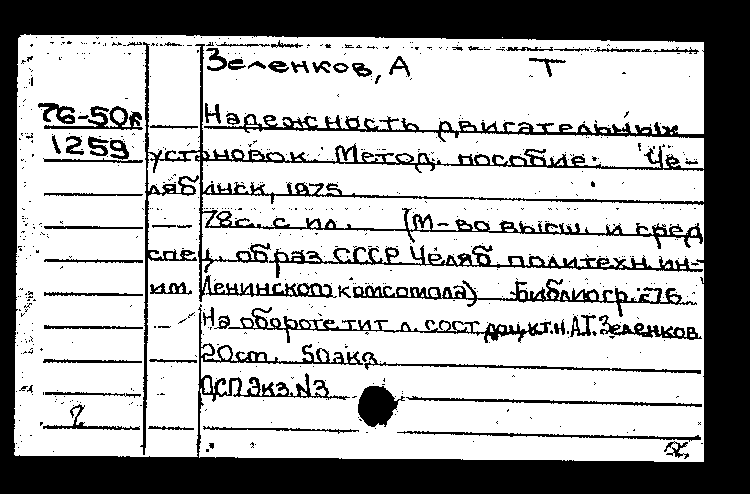 Зеленков, А Т
76-50к Надежность двигательных
1259 установок. Метод. пособие: Че-
лябинск, 1975.
78с. с ил. (М-во высш. и сред
спец. образ СССР Челяб. политехн ин-т
им. Ленинского комсомола) Библиогр. с 76.
На обороте тит л. сост доц.к.т.н. А.Т. Зеленков.
20см. 50экз.
ДСП Экз. №3